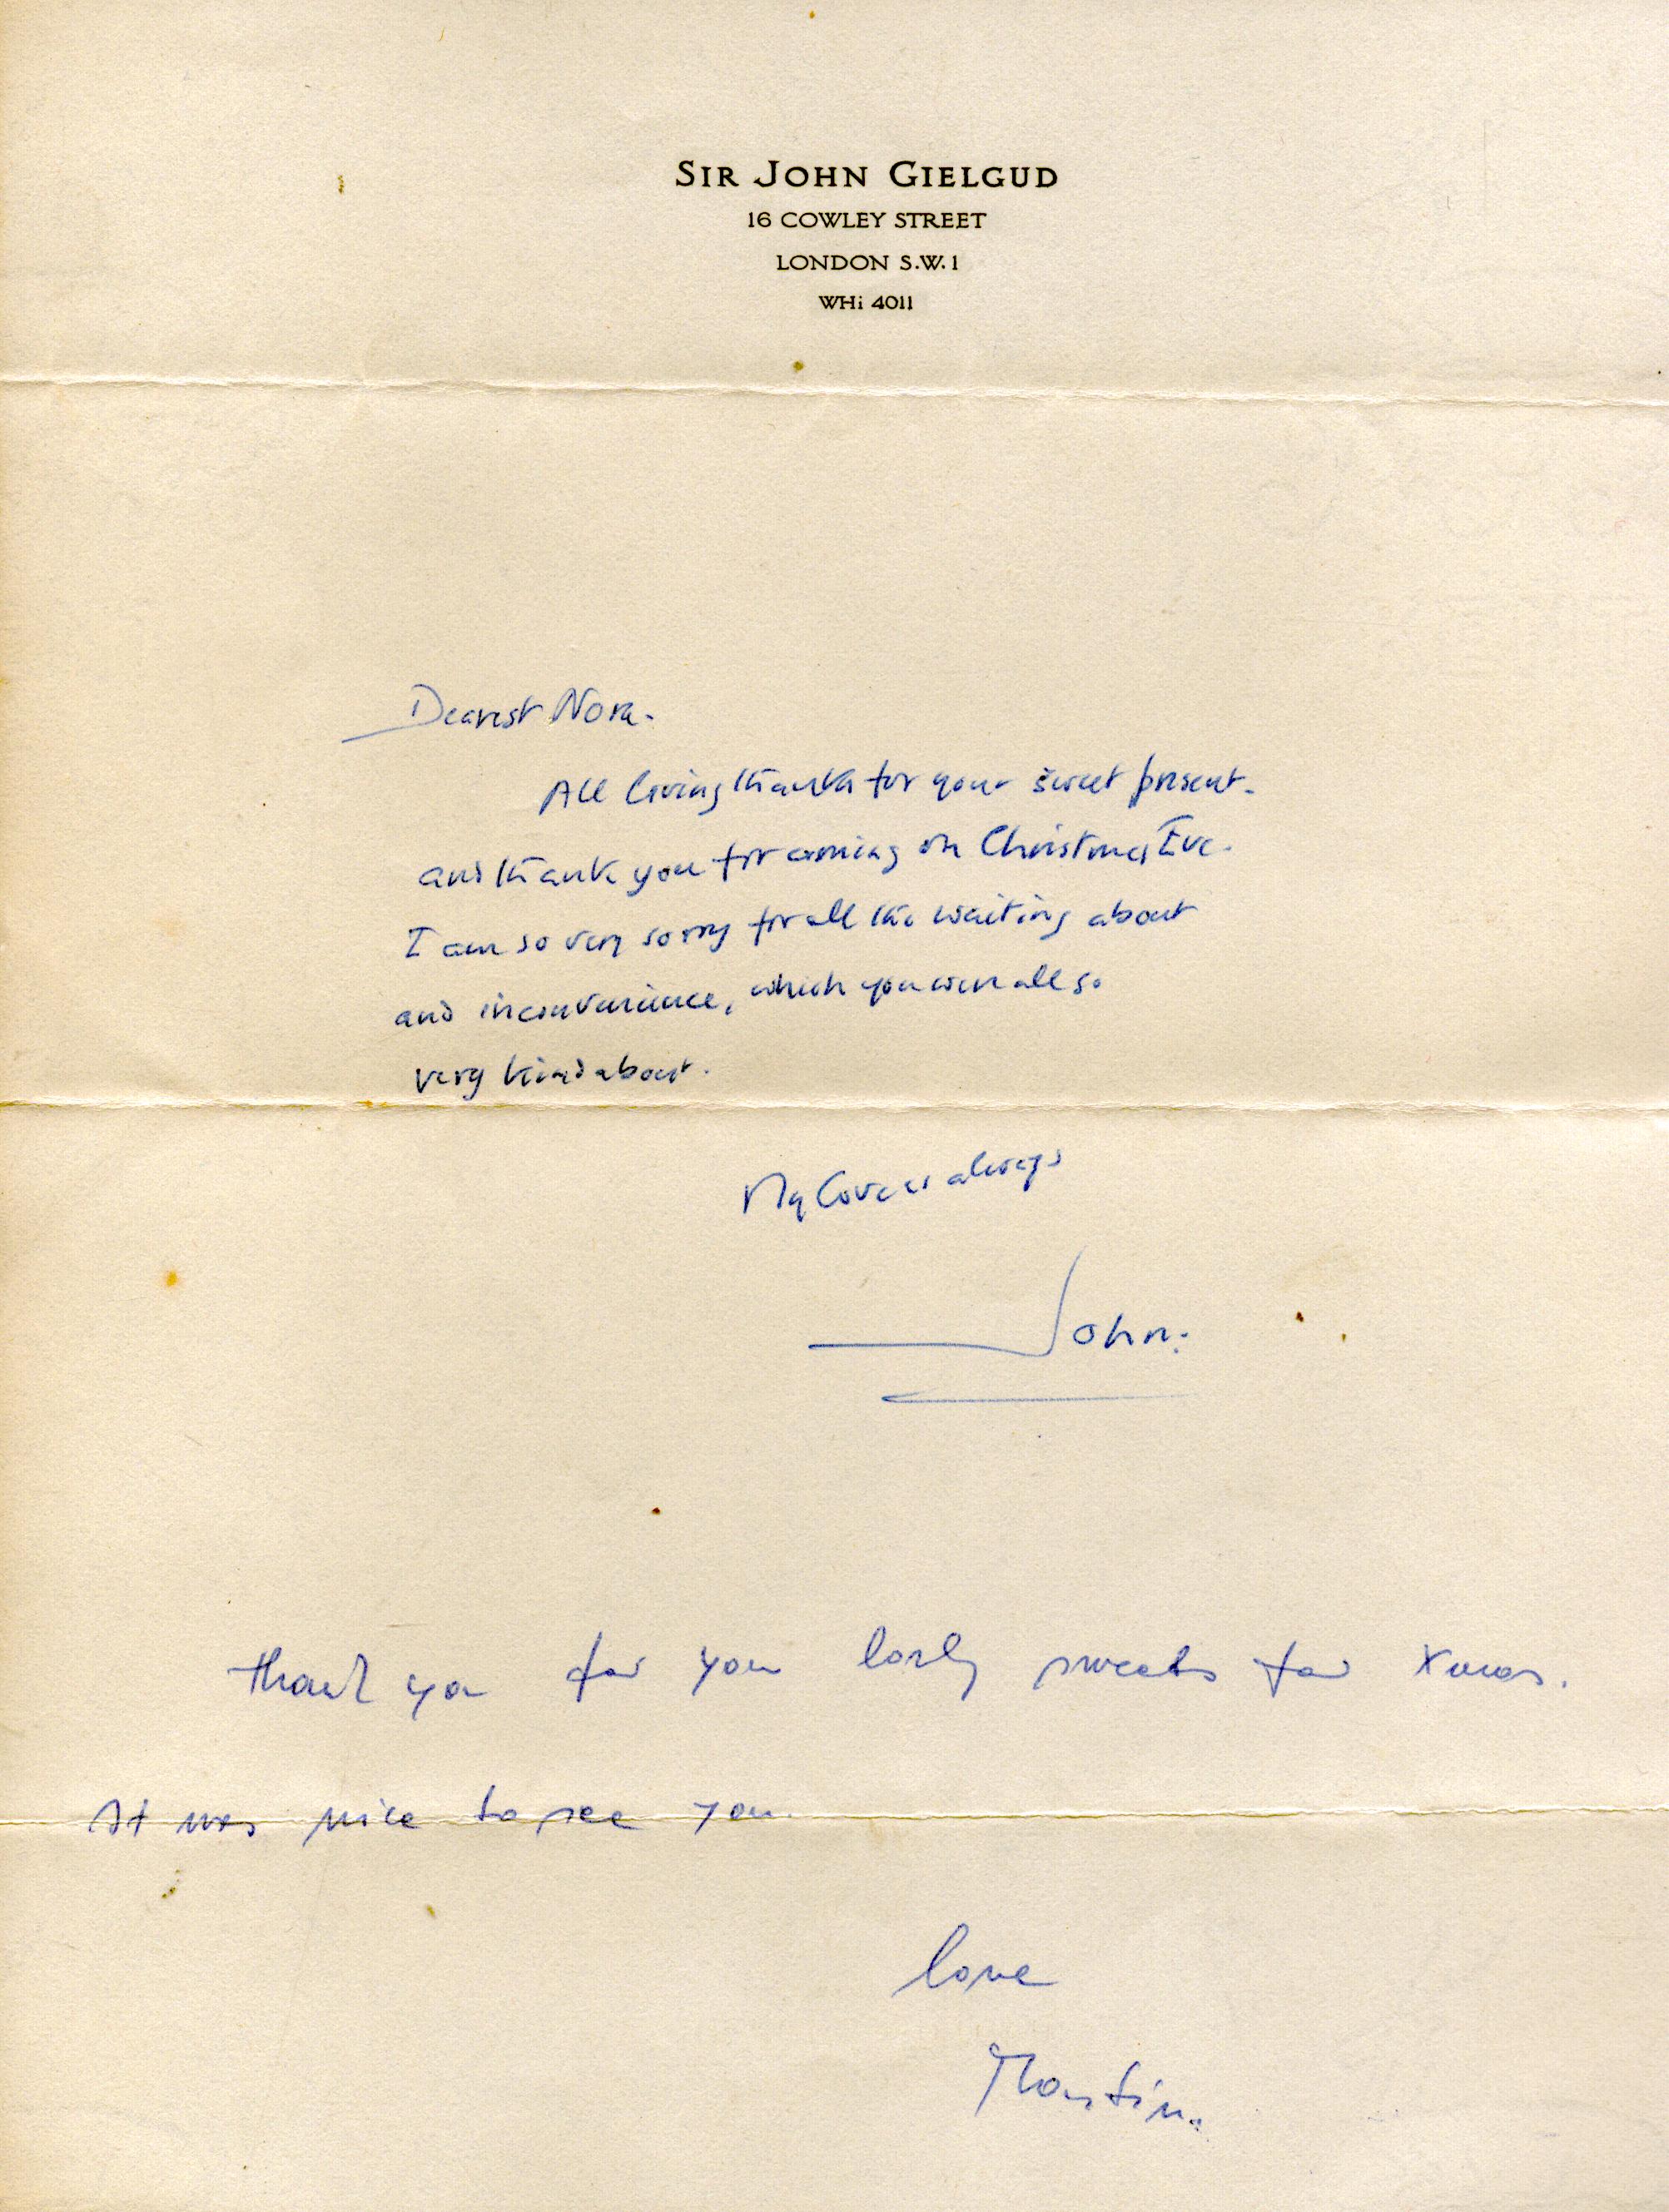 SIR JOHN GIELGUD
16 COWLEY STREET
LONDON S.W.1
WHi 4011
Dearest Nora.
All loving thanks for your sweet present.
and thank you for coming on Christmas Eve.
I am so very sorry for all the waiting about
and inconvenience, which you were all so
very kind about.
My love as always
John.
thank you for you lovely sweets for Xmas.
It was nice to see you.
love
Martin.